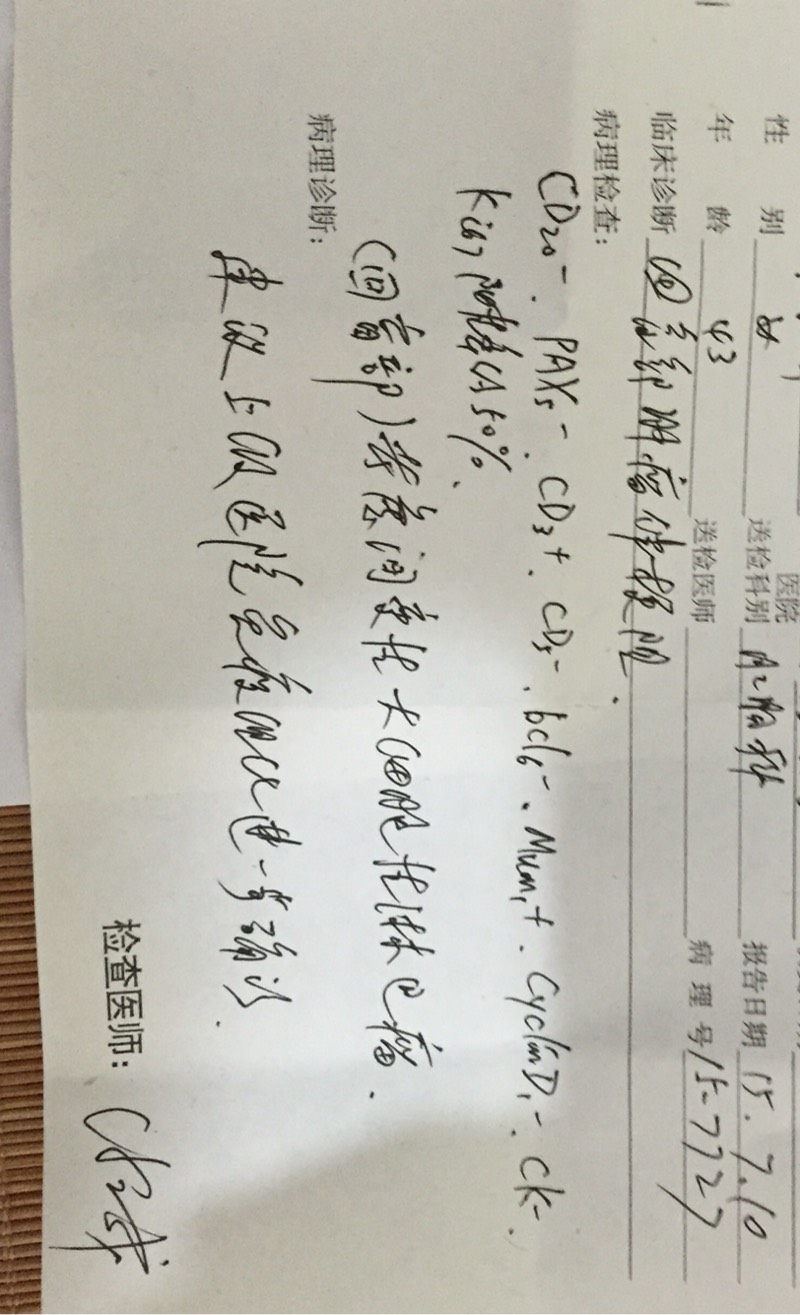 医院
性 别 女 送检科别 报告日期 15.7.10
年 龄 43 送检医师 病 理 号 15-7727
临床诊断 回盲部肿瘤伴梗阻.
病理检查:
CD20-. PAX5-. CD3+. CD5-. bcl6-. Mum1+. CyclinD1-. CK-.
Ki67阳性率约50%.
病理诊断:
(回盲部)考虑间变性大细胞性淋巴瘤.
建议上级医院会诊进一步确诊.
检查医师: